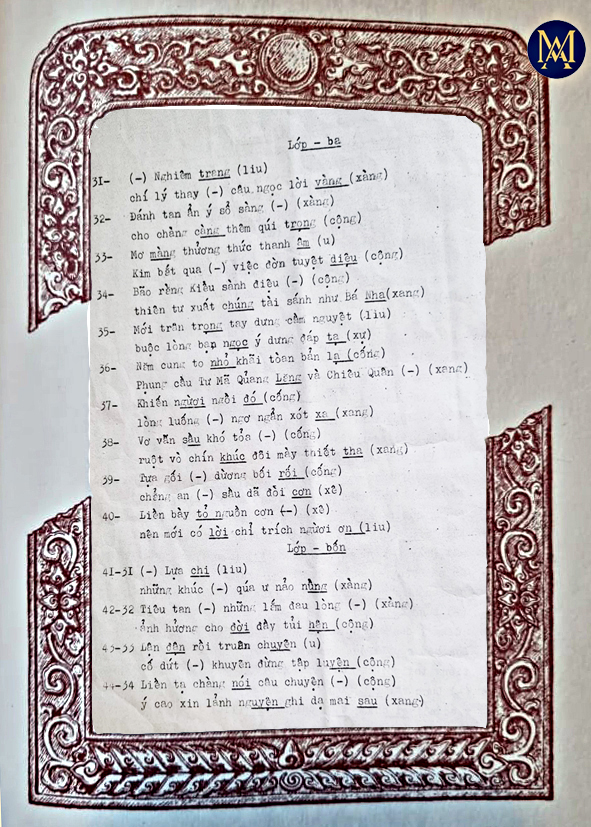 MA
Lớp - ba
31- (-) Nghiêm trang (liu)
chí lý thay (-) câu ngọc lời vàng (xàng)
32- Đánh tan ẩn ý sổ sàng (-) (xàng)
cho chàng càng thêm qúi trọng (cộng)
33- Mơ màng thưởng thức thanh âm (u)
Kim bất qua (-) việc đờn tuyệt diệu (cộng)
34- Bão rằng Kiều sành điệu (-) (cộng)
thiên tư xuất chúng tài sánh như Bá Nha(xang)
35- Mới trân trọng tay dưng cầm nguyệt (liu)
buộc lòng bạn ngọc ý dưng đáp tạ (xự)
36- Năm cung to nhỏ khãi tòan bản lạ (cống)
Phụng cầu Tư Mã Quảng Lăng và Chiêu Quân (-) (xang)
37- Khiến người ngồi đó (cống)
lòng luống (-) ngơ ngẩn xót xa (xang)
38- Vơ vẫn sầu khó tỏa (-) (cống)
ruột vò chín khúc đôi mày thiết tha (xang)
39- Tựa gối (-) dường bối rối (cống)
chẳng an (-) sầu dã đòi cơn (xê)
40- Liền bày tỏ nguồn cơn (-) (xê)
nên mới có lời chỉ trích người ơn (liu)
Lớp - bốn
41-31 (-) Lựa chi (liu)
những khúc (-) qúa ư nảo nùng (xàng)
42-32 Tiêu tan (-) những lắm đau lòng (-) (xàng)
ảnh hưởng cho đời đầy tủi hận (cộng)
43-33 Lận đận rồi truân chuyên (u)
cố dứt (-) khuyên đừng tập luyện (cộng)
44-34 Liền tạ chàng nói câu chuyện (-) (cộng)
ý cao xin lảnh nguyện ghi dạ mai sau (xang)